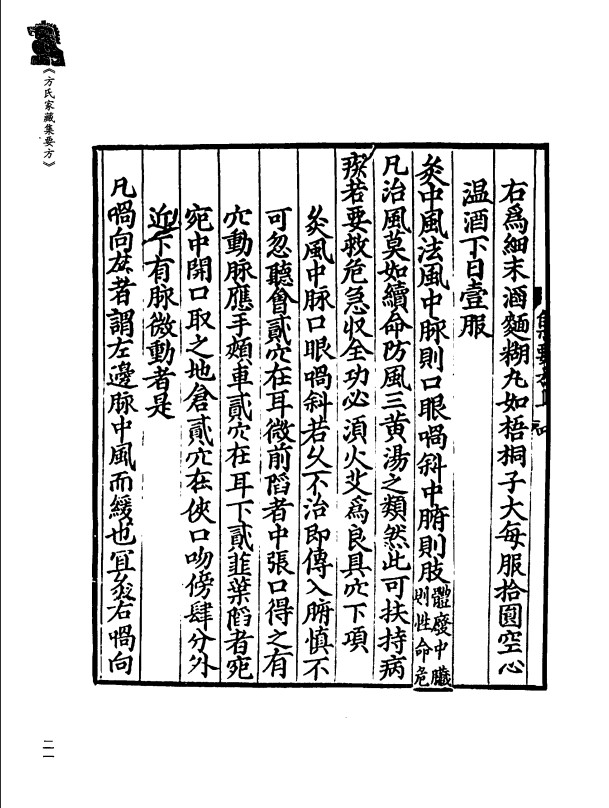 《方氏家藏集要方》
右爲細末酒麵糊丸如梧桐子大每服拾圓空心
温酒下日壹服
灸中風法風中脉則口眼喎斜中腑則肢體廢中臟則性命危
凡治風莫如續命防風三黄湯之類然此可扶持病
瘼若要救危急収全功必湏火艾爲良具穴下項
灸風中脉口眼喎斜若久不治即傳入腑慎不
可忽聽會貳穴在耳微前䧟者中張口得之有
穴動脉應手頰車貳穴在耳下貳韮葉䧟者宛
宛中開口取之地倉貳穴在俠口吻傍肆分外
近下有脉微動者是
凡喎向右者謂左邊脉中風而緩也宜灸右喎向
二一